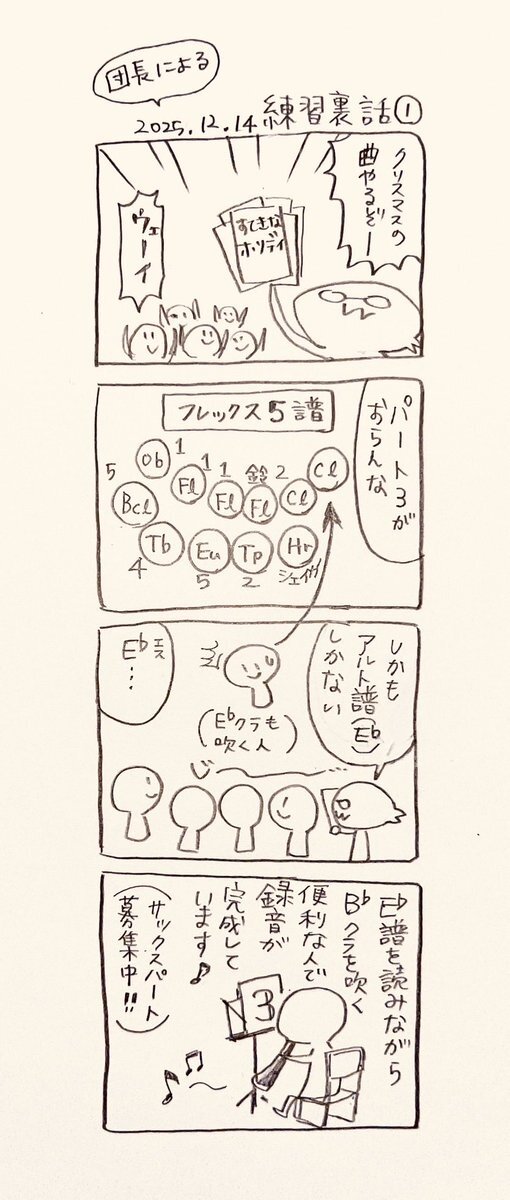 団長による
2025.12.14 練習裏話①
クリスマスの
曲やるぞー
すてきな
ホリデイ
ウェーイ
パート3が
おらんな
フレックス5譜
5
Bcl
Ob
1
Fl
1
Fl
1
Fl
鈴
Cl
2
Cl
Tb
4
Eu
5
Tp
2
Hr
シェイカー
しかも
アルト譜(E♭)
しかない
E♭
エス
…
(E♭クラも
吹く人)
じ〜
E♭譜を読みながら
B♭クラを吹く
便利な人で
録音が
完成して
います♪
(サックスパート
募集中!!)
3